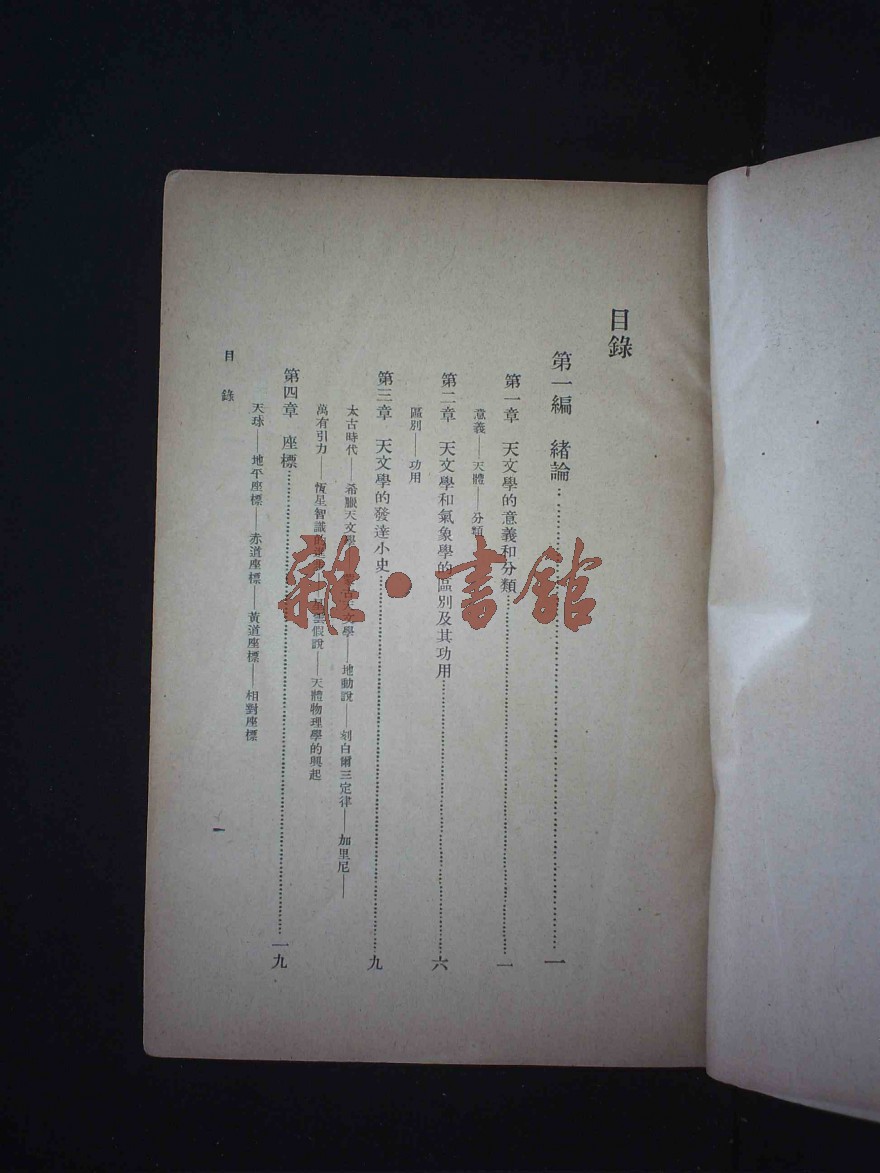 目錄
第一編 緒論……一
第一章 天文學的意義和分類……一
意義——天體——分類
第二章 天文學和氣象學的區別及其功用……六
區別——功用
第三章 天文學的發達小史……九
太古時代——希臘天文學 古天文學——地動說——刻白爾三定律——加里尼——
萬有引力——恆星智識的 星雲假說——天體物理學的興起
第四章 座標……一九
天球——地平座標——赤道座標——黃道座標——相對座標
目錄
一
雜·書館